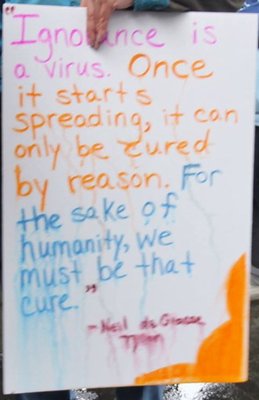 "Ignorance is
a virus. Once
it starts
spreading, it can
only be cured
by reason. For
the sake of
humanity, we
must be that
cure."
- Neil de Grasse
Tyson